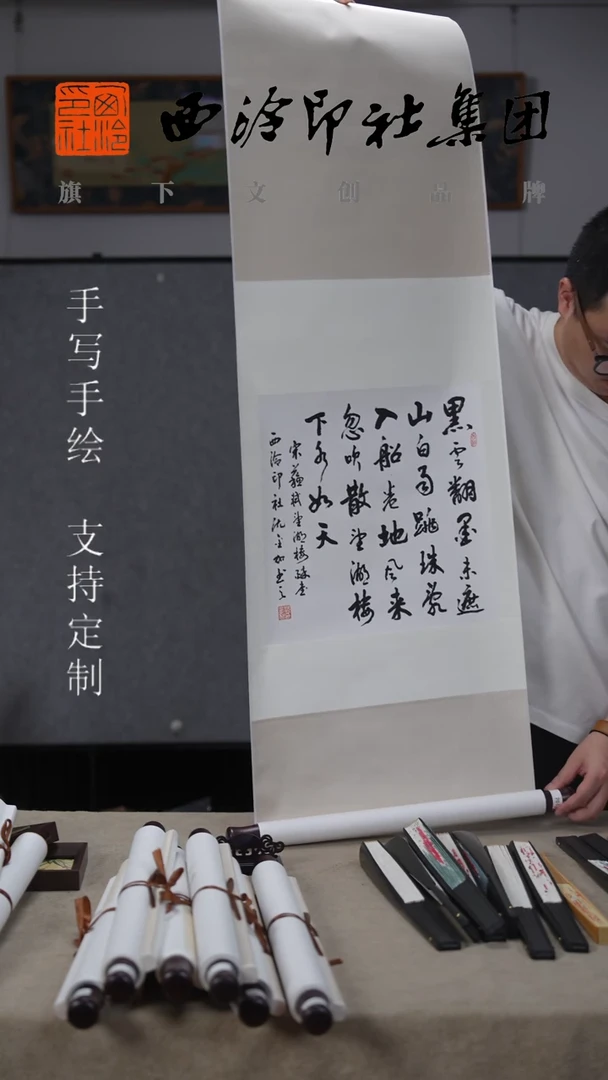 西泠印社
西泠印社集团
旗下文创品牌
手写手绘 支持定制
黑云翻墨未遮
山白雨跳珠亂
入船卷地风来
忽吹散望湖樓
下水如天
宋蘇軾望湖樓醉書
西泠印社沈